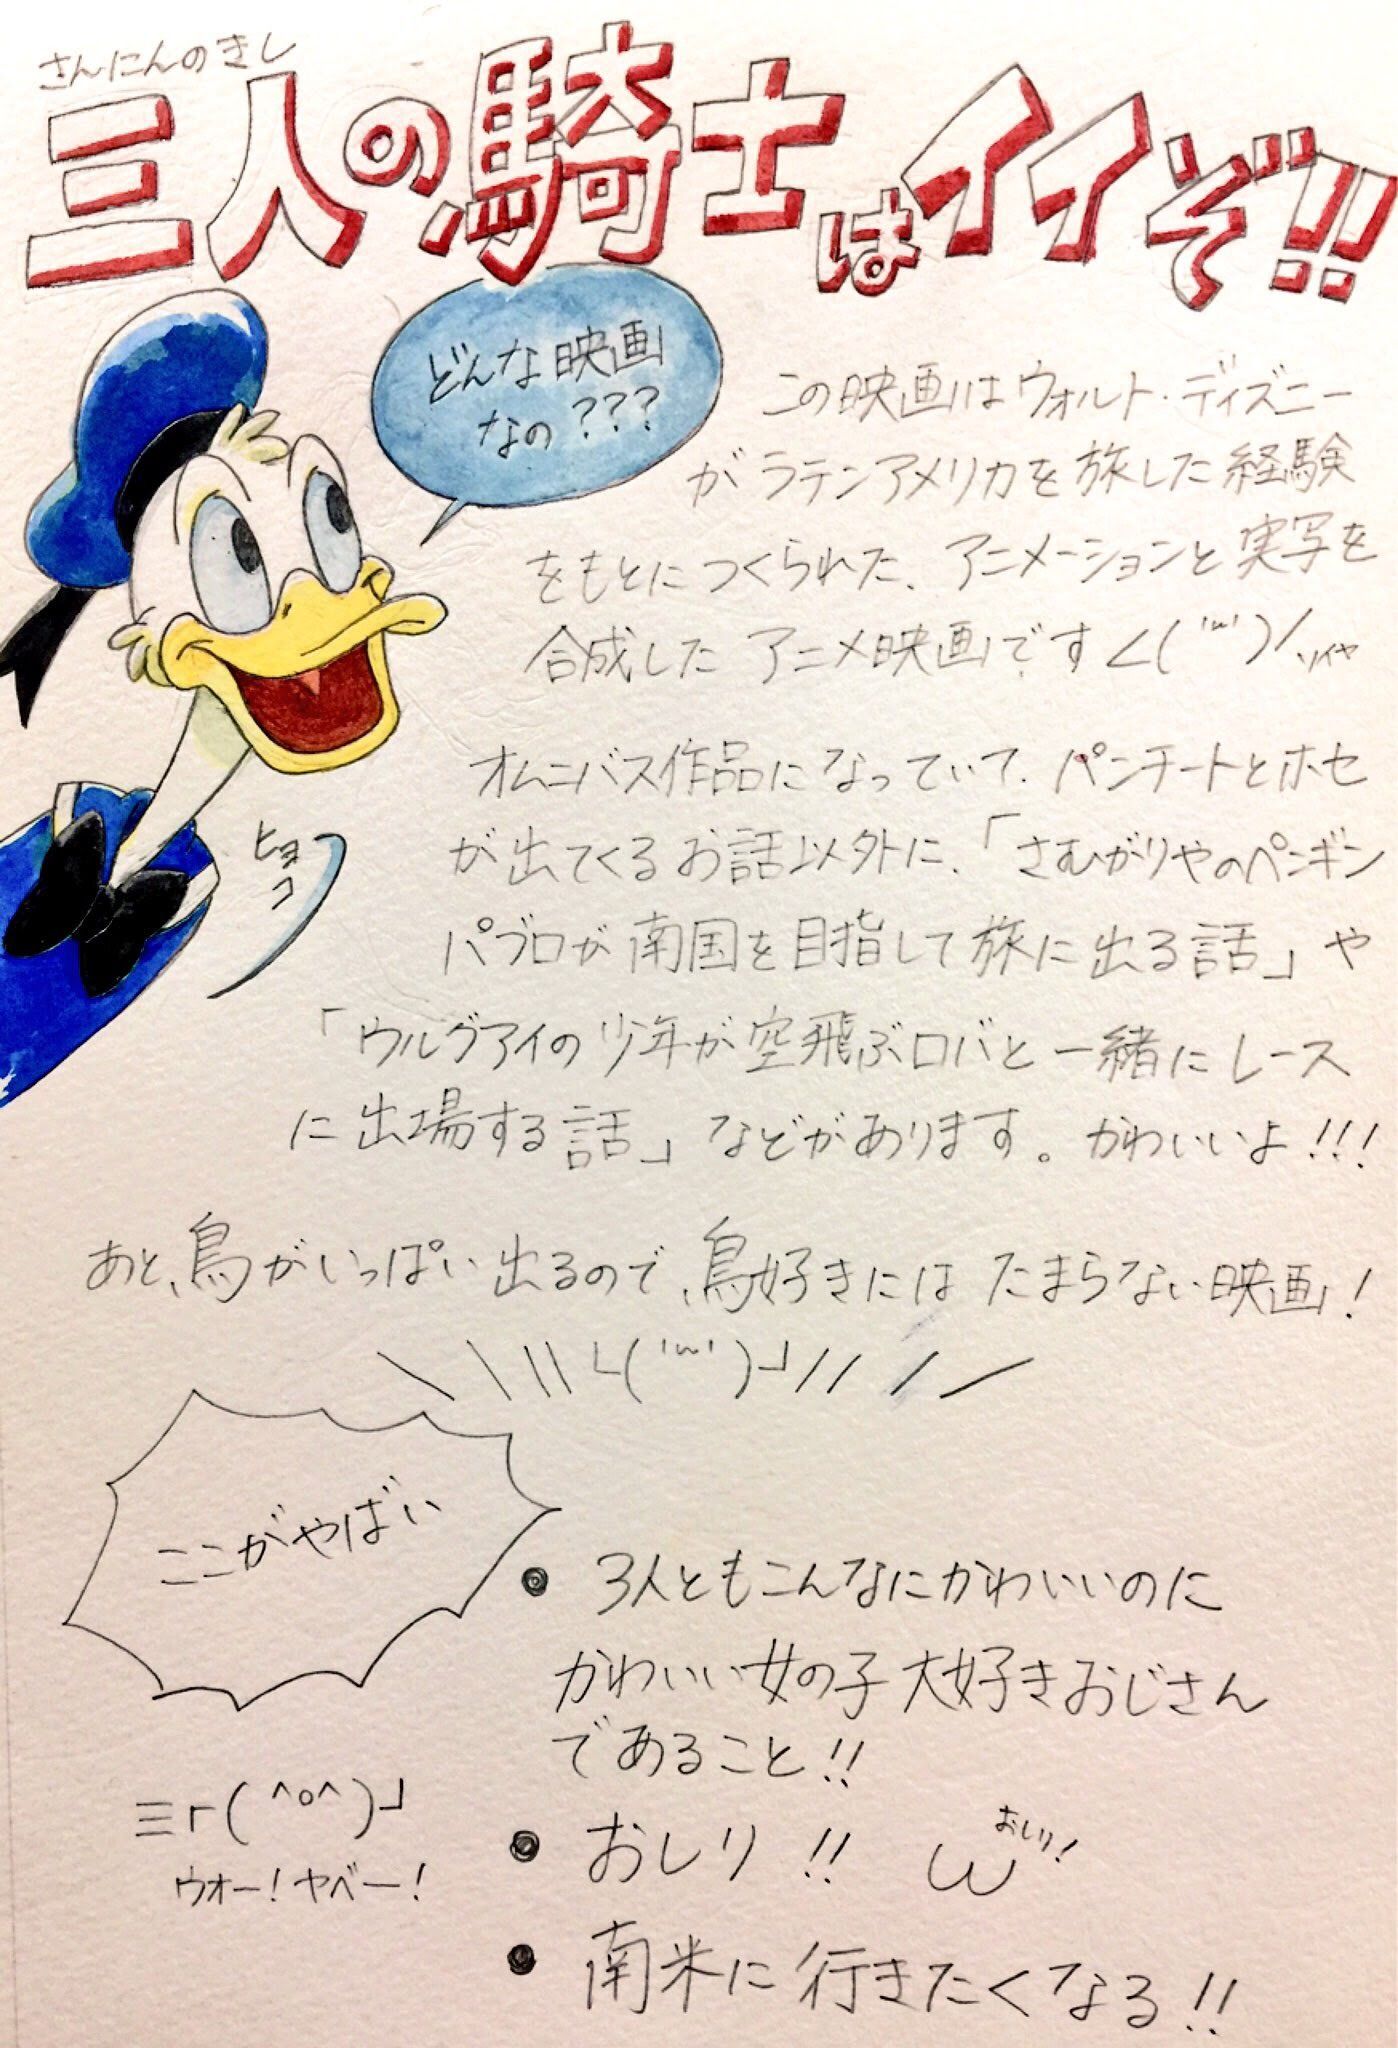 さんにんのきし
三人の騎士はイイぞ!!
どんな映画
なの???
この映画はウォルト・ディズニー
がラテンアメリカを旅した経験
をもとにつくられた、アニメーションと実写を
合成したアニメ映画です<( 'ω' )/ ソイヤ
オムニバス作品になっていて、パンチートとホセ
が出てくるお話以外に、「さむがりやのペンギン
パブロが南国を目指して旅に出る話」や
「ウルグアイの少年が空飛ぶロバと一緒にレース
に出場する話」などがあります。かわいいよ!!!
ヒョコ
あと、鳥がいっぱい出るので、鳥好きにはたまらない映画!
\ \ \\ └( 'ω' )┘// / /
ここがやばい
● 3人ともこんなにかわいいのに
かわいい女の子大好きおじさん
であること!!
三┌( ^o^ )┘
ウオー!ヤベー!
● おしり!! ω おしり!
● 南米に行きたくなる!!